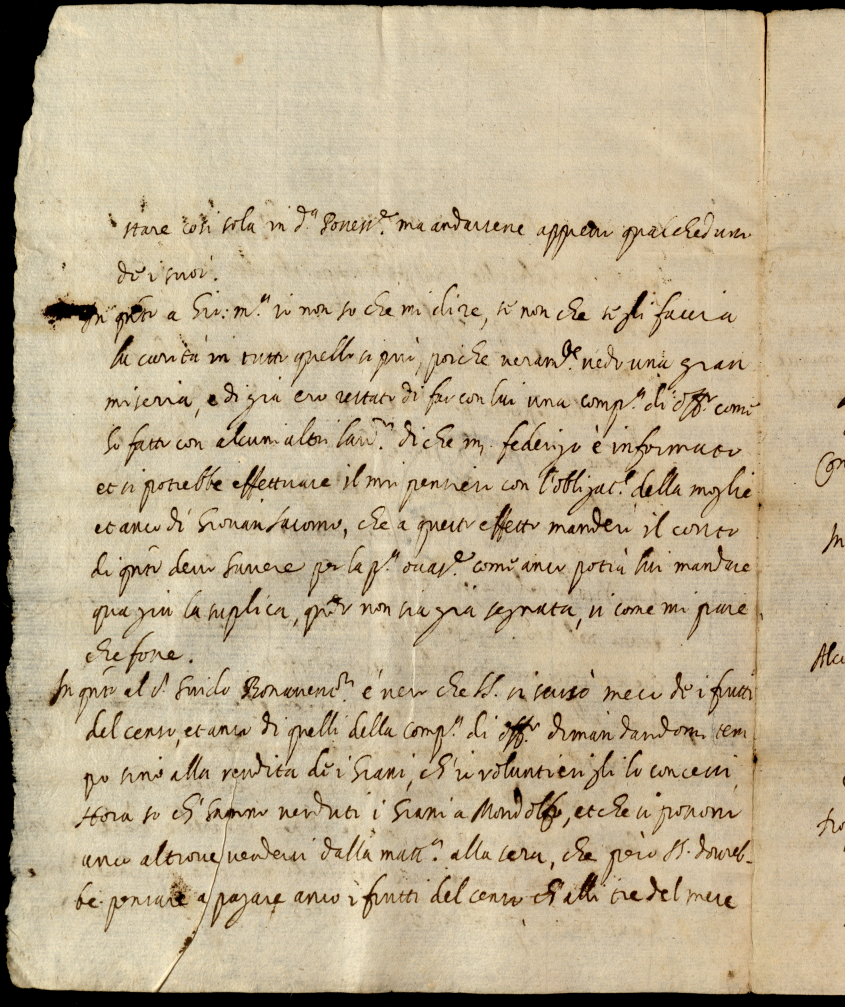 stare così sola in d.ª Possess.ᵉ ma andarsene appresso qualcheduno
de i suoi.
In qto a Gio: m.ª io non so che mi dire, se non che se gli faccia
la carità in tutto quello si può, poiche veram.te vedo una gran
miseria, e di già ero restato di far con lui una comp.ª di off.º come
ho fatto con alcuni altri lav.ri di che m. federigo è informato
et si potrebbe effettuare il mio pensiero con l'obligat.e della moglie
et anco di Giovan Iacomo, che a questo effetto manderò il conto
di qto devo havere per la p.ª occas.e come anco potrà lui mandare
qua giù la suplica, non sia già segnata, si come mi pare
che fosse.
In qto al S.r Guido Bonavent.ra è vero che SS. si scusò meco de i frutti
del censo, et anco di quelli della comp.ª di off.º dimandandomi tem
po sino alla vendita de i Grani, ch'io voluntieri gli lo concessi
Hora so ch'hanno venduti i Grani a Mondolfo, et che si possono
anco altrove vendersi dalla matt.ª alla sera, che però SS. dovreb-
be pensare a pagare anco i frutti del censo ch'alli tre del mese
Con
In
Alcu